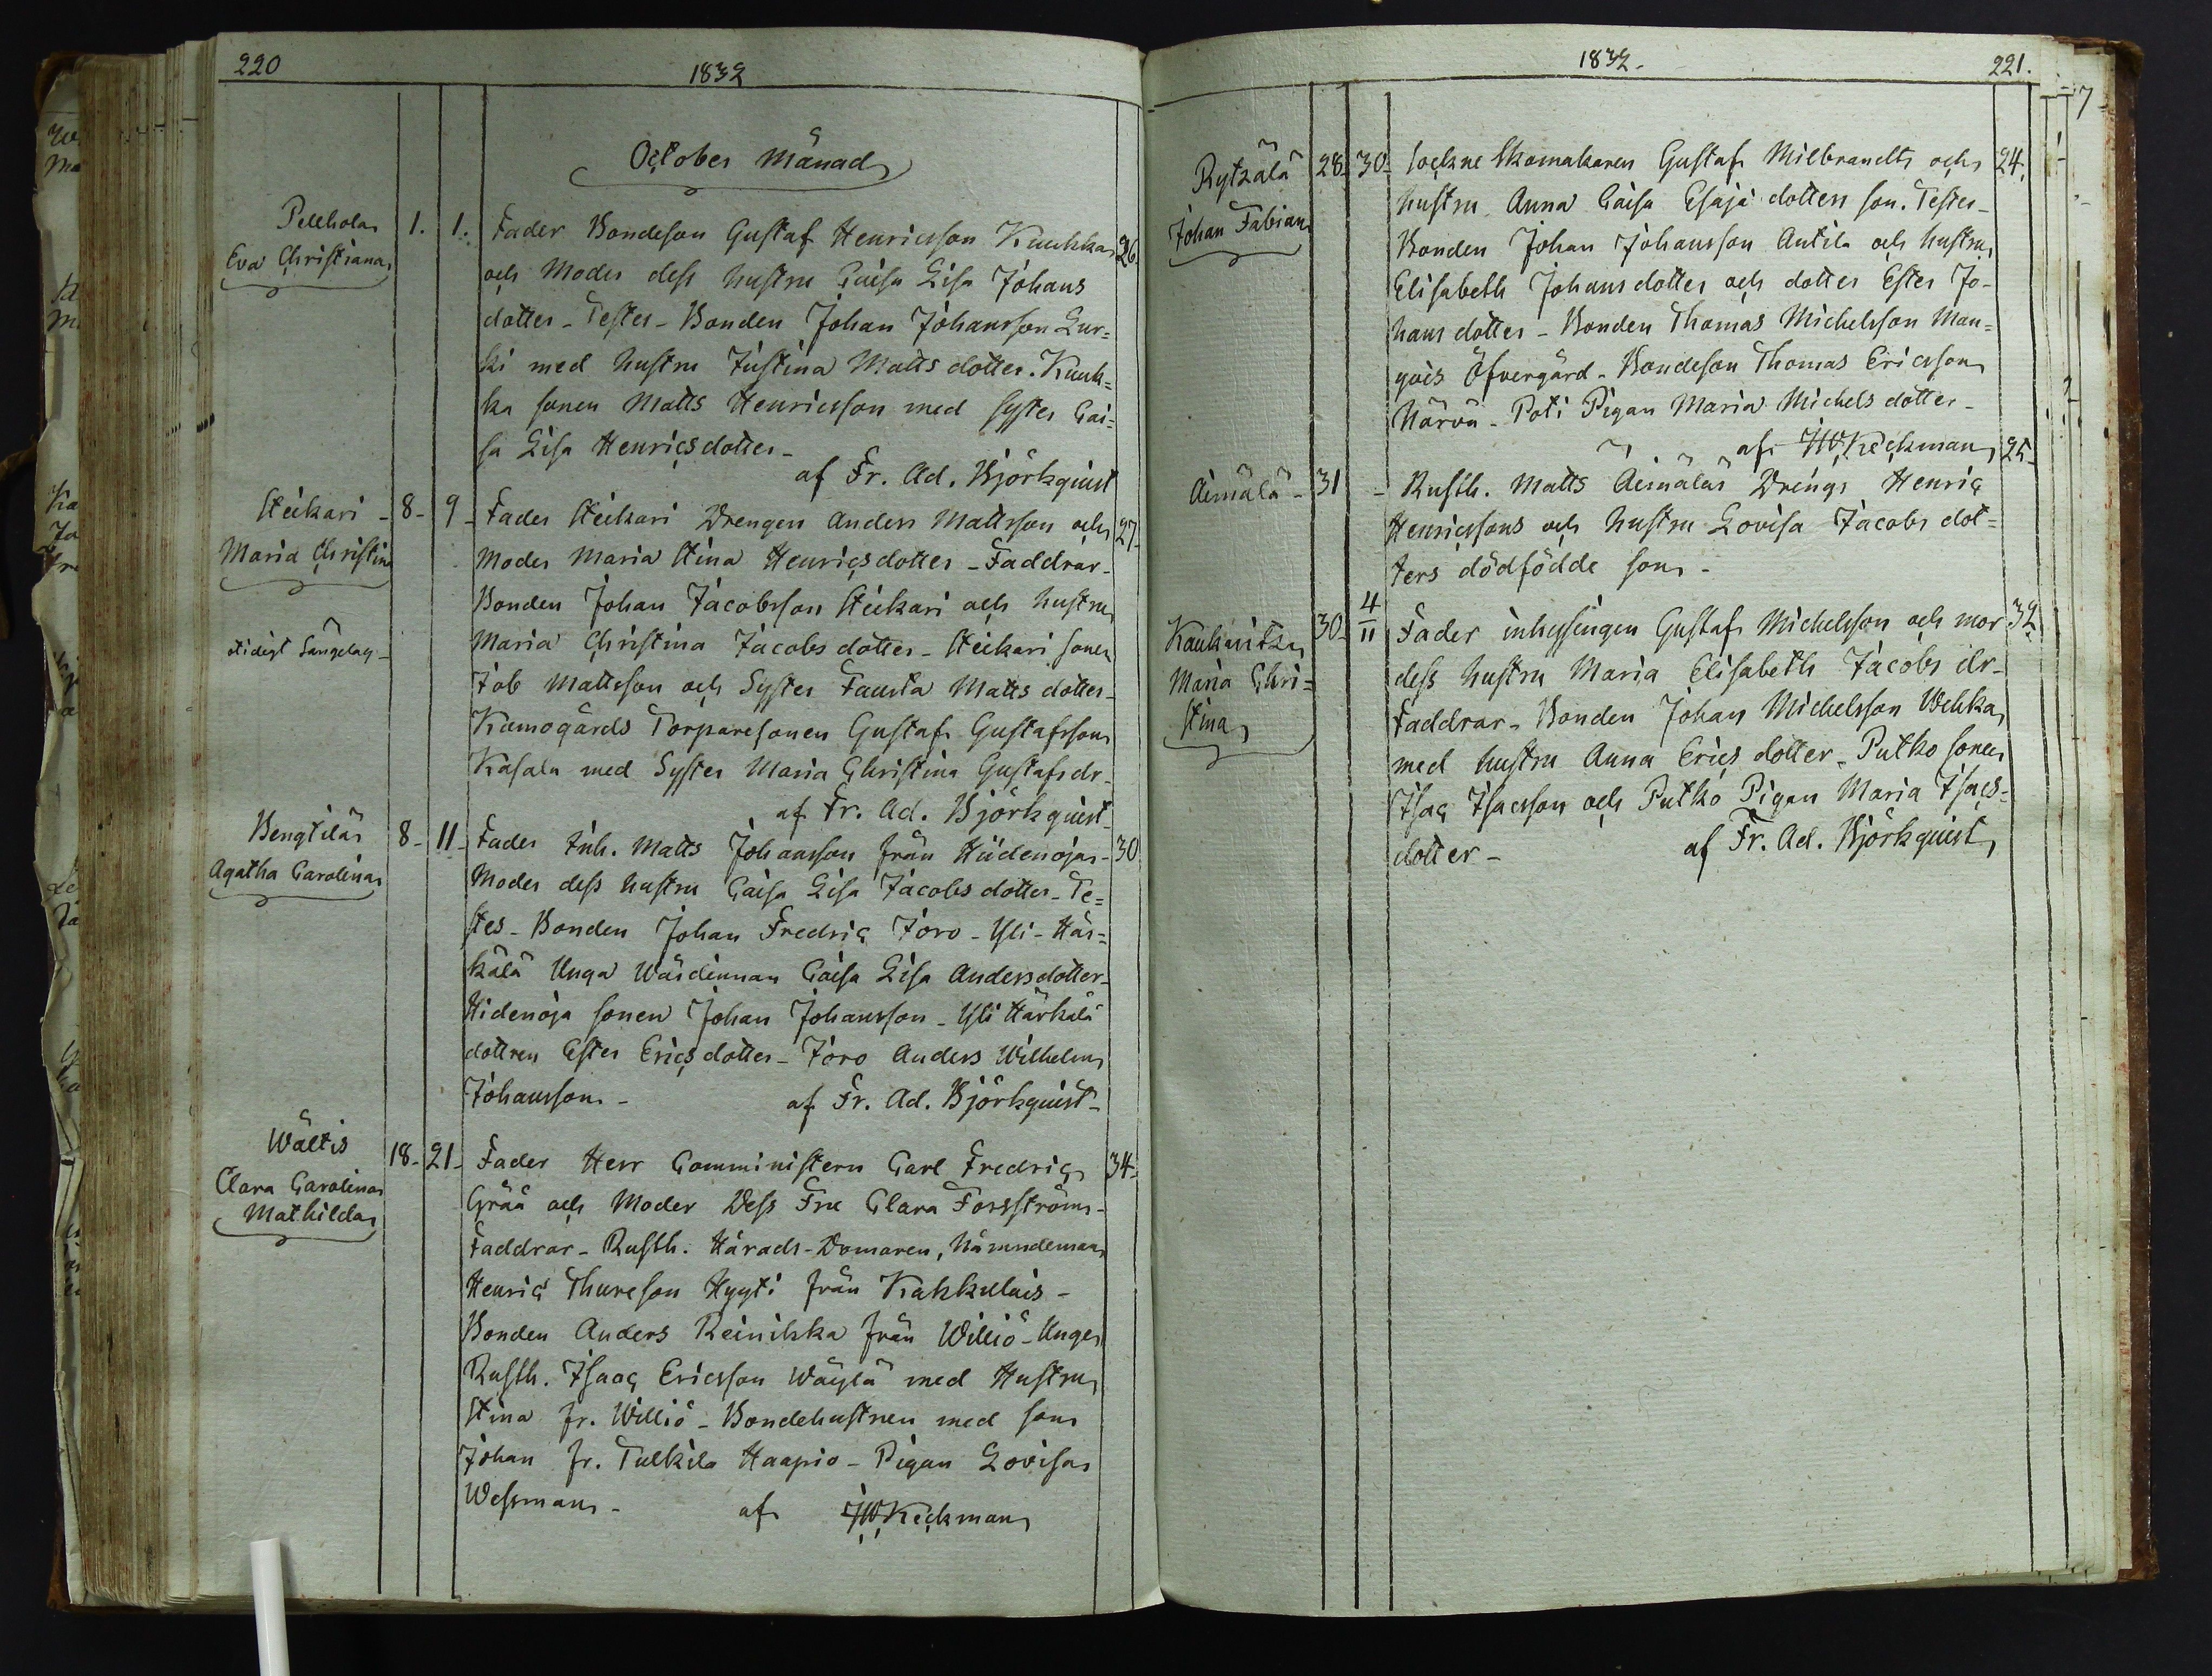 220
1832
October Månad
Pellhola 1. 1. Fader Bondeson Gustaf Henricsson Kuukka 26.
Eva Christiana och Moder dess hustru Caisa Lisa Johans
dotter - Testes - Bonden Johan Johansson Lur=
ki med hustru Justina Matts dotter. Kuuk=
ka sonen Matts Henricsson med syster Cai=
sa Lisa Henricsdotter -
af Fr. Ad. Björkquist
Steikari - 8 - 9 - Fader Steikari Drengen Anders Mattsson och 27 -
Maria Christina Moder Maria Stina Henricsdotter - Faddrar -
Bonden Johan Jacobsson Steikari och hustru
otidigt Sängelag - Maria Christina Jacobs dotter - Steikari sonen
Job Mattsson och Syster Fausta Matts dotter -
Kumogårds Torparesonen Gustaf Gustafsson
Kasala med Syster Maria Christina Gustafs dr -
af Fr. Ad. Björkquist -
Bengtilä 8 - 11 - Fader Inh. Matts Johansson från Hiidenoja - 30
Agatha Carolina Moder dess hustru Caisa Lisa Jacobs dotter - Te=
stes - Bonden Johan Fredric Joro - Yli - Här=
kälä Unga Wärdinnan Caisa Lisa Andersdotter -
Hidenoja sonen Johan Johansson - Yli Härkälä
dottren Ester Erics dotter - Joro Anders Wilhelm
Johansson - af Fr. Ad. Björkquist -
Wältis 18 - 21 - Fader Herr Comministern Carl Fredric 34 -
Clara Carolina Gråå och Moder Dess Fru Clara Forsström -
Mathilda Faddrar - Rusth. Härads - Domaren, Nämndeman
Henric Thureson Hyyti från Kakkulais -
Bonden Anders Reinikka från Williö - Unge
Rusth. Isaac Ericsson Wäylä med Hustru
Stina fr. Williö - Bondehustrun med son
Johan fr. Tulkila Haapio - Pigan Lovisa
Wessman - af JWKeckman
1832 -
221.
Rytzälä 28 - 30 - Sockne Skomakaren Gustaf Milbrandts och 24.
Johan Fabian hustru Anna Caisa Esaja dotters son. Testes -
Bonden Johan Johansson Antila och hustru
Elisabeth Johans dotter och dotter Ester Jo-
hans dotter - Bonden Thomas Michelsson Man=
gois Öfvergård - Bondeson Thomas Ericsson
Närvä - Poti Pigan Maria Michels dotter -
af JWKeckman 25 -
Äimälä - 31 - Rusth. Matts Äimäläs Drengs Henric
Henricssons och hustru Lovisa Jacobs dot=
ters dödfödde son -
Kaukaritzu 30 - 4/11 Fader inhysingen Gustaf Michelsson och mor 32.
Maria Chri= dess hustru Maria Elisabeth Jacobs dr -
stina Faddrar - Bonden Johan Michelsson Uhka
med hustru Anna Erics dotter - Putko sonen
Isac Isacsson och Putko Pigan Maria Isacs-
dotter - af Fr. Ad. Björkquist